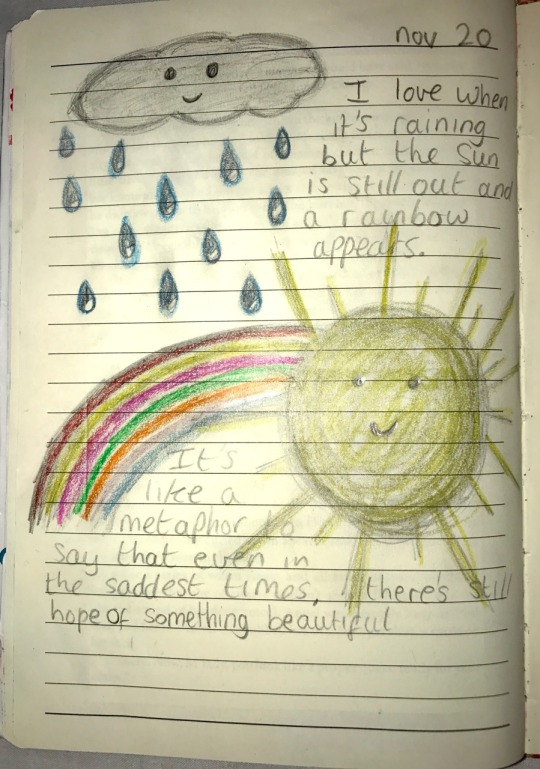 nov 20
I love when
it's raining
but the sun
is still out and
a rainbow
appears.
It's
like a
metaphor to
say that even in
the saddest times, there's still
hope of something beautiful